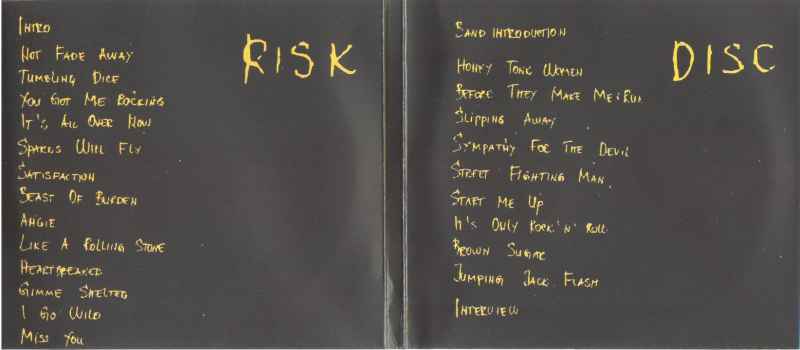 INTRO
NOT FADE AWAY
TUMBLING DICE
YOU GOT ME ROCKING
IT'S ALL OVER NOW
SPARKS WILL FLY
SATISFACTION
BEAST OF BURDEN
ANGIE
LIKE A ROLLING STONE
HEARTBREAKER
GIMME SHELTER
I GO WILD
MISS YOU
RISK
BAND INTRODUCTION
HONKY TONK WOMEN
BEFORE THEY MAKE ME RUN
SLIPPING AWAY
SYMPATHY FOR THE DEVIL
STREET FIGHTING MAN
START ME UP
IT'S ONLY ROCK'N'ROLL
BROWN SUGAR
JUMPING JACK FLASH
INTERVIEW
DISC